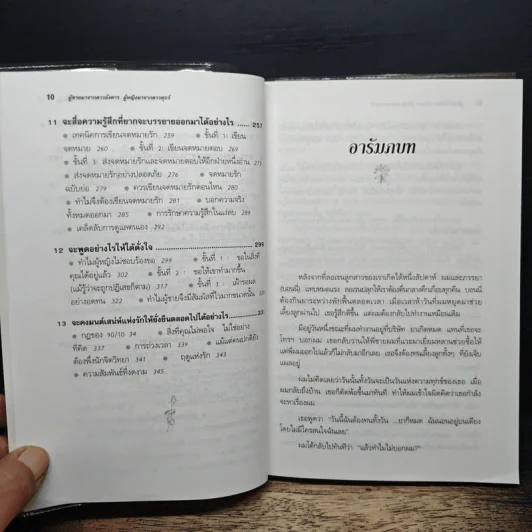 10 ผู้ชายมาจากดาวอังคาร ผู้หญิงมาจากดาวศุกร์
11 จะสื่อความรู้สึกที่ยากจะบรรยายออกมาได้อย่างไร ....... 257
• เทคนิคการเขียนจดหมายรัก 259 • ขั้นที่ 1: เขียน
จดหมาย 260 • ขั้นที่ 2: เขียนจดหมายตอบ 269
• ขั้นที่ 3: ส่งจดหมายรักและจดหมายตอบให้อีกฝ่ายหนึ่งอ่าน
• ส่งจดหมายรักอย่างปลอดภัย 276 • จดหมายรัก
ฉบับย่อ 279 • ควรเขียนจดหมายรักตอนไหน 280
• ทำไมจึงต้องเขียนจดหมายรัก 281 • บอกความจริง
ทั้งหมดออกมา 285 • การรักษาความรู้สึกในแง่ลบ 289
• เคล็ดลับการดูแลตนเอง 292
12 จะพูดอย่างไรให้ได้ดั่งใจ ....... 299
• ทำไมผู้หญิงไม่ชอบร้องขอ • ขั้นที่ 1 : ขอในสิ่งที่
คุณได้อยู่แล้ว 302 • ขั้นที่ 2 : ขอให้เขาทำมากขึ้น
(แม้รู้ว่าจะถูกปฏิเสธก็ตาม) • ขั้นที่ 3 : เฝ้ารออย่าง
อดทน 322 • ทำไมผู้ชายจึงมีสัมผัสที่ไวมากขนาดนั้น
13 จะคงมนต์เสน่ห์แห่งรักให้ยั่งยืนตลอดไปได้อย่างไร
• กฎของ 90/10 34 • สิ่งที่คุณไม่พอใจ ไม่ใช่อย่าง
ที่คิด 337 • การถ่วงเวลา 339 • แม้แต่คนปกติยัง
ต้องพึ่งนักจิตวิทยา 341 • ฤดูแห่งรัก 343
• ความสัมพันธ์ที่งดงาม 345
อารัมภบท
หลังจากที่ลอเรนลูกสาวของเราเกิดได้หนึ่งสัปดาห์ ผมและภรรยา
(บอนนี่) แทบหมดแรง ลอเรนปลุกให้เราต้องตื่นกลางดึกเกือบทุกคืน บอนนี่
ต้องกินยาระงับปวดตลอดเวลา เมื่อเวลาห้าวันที่ผมหยุดมาช่วย
เลี้ยงลูกผ่านไป เธอรู้สึกดีขึ้น แต่ผมต้องกลับไปทำงานเหมือนเดิม
มีอยู่วันหนึ่งขณะที่ผมทำงานอยู่ที่บริษัท ยาเกิดหมด แทนที่เธอจะ
โทรฯ บอกผม เธอกลับวานให้พี่ชายผมที่แวะมาเยี่ยมหลานช่วยซื้อให้
แต่พี่ผมออกไปแล้วก็ไม่กลับมาอีกเลย เธอจึงต้องทนเลี้ยงลูกทั้งๆ ที่ยังเจ็บ
แผลอยู่
ผมไม่คิดเลยว่าวันนั้นทั้งวันจะเป็นวันแห่งความทุกข์ของเธอ เมื่อ
ผมกลับมาถึงบ้าน เธอก็ตัดพ้อขึ้นมาทันที ทำให้ผมเข้าใจผิดคิดว่าเธอกำลัง
จะหาเรื่องผม
เธอพูดว่า “วันนี้ฉันต้องทนทั้งวัน ...ยาก็หมด ฉันนอนอยู่บนเตียง
โดยไม่มีใครสนใจฉันเลย”
ผมโต้กลับไปทันทีว่า “แล้วทำไมไม่บอกผม?”